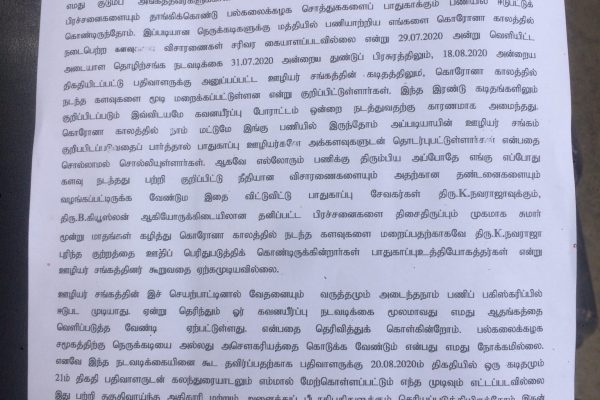 எமது குடும்ப அங்கத்தவர்களை
பிரச்சனைகளையும் தாங்கிக்கொண்டு பல்கலைக்கழக சொத்துக்களைப் பாதுகாக்கும் பணியில் ஈடுபட்டுக்
கொண்டிருந்தோம். இப்படியான நெருக்கடிகளுக்கு மத்தியில் பணியாற்றிய எங்களை கொரோனா காலத்தில்
நடைபெற்ற களவுகளை விசாரணைகள் சரிவர கையாளப்படவில்லை என்று 29.07.2020 அன்று வெளியிட்ட
அடையாள தொழிற்சங்க நடவடிக்கை 31.07.2020 அன்றைய துண்டுப் பிரசுரத்திலும், 18.08.2020 அன்றைய
திகதியிடப்பட்டு பதிவாளருக்கு அனுப்பப்பட்ட ஊழியர் சங்கத்தின் கடிதத்திலும், கொரோனா காலத்தில்
நடந்த களவுகளை மூடி மறைக்கப்பட்டுள்ளன என்று குறிப்பிட்டுள்ளார்கள். இந்த இரண்டு கடிதங்களிலும்
குறிப்பிடப்படும் இவ்விடயமே கவனயீர்ப்பு போராட்டம் ஒன்றை நடத்துவதற்கு காரணமாக அமைந்தது.
கொரோனா காலத்தில் நாம் மட்டுமே இங்கு பணியில் இருந்தோம் அப்படியாயின் ஊழியர் சங்கம்
குறிப்பிடப்படுவதைப் பார்த்தால் பாதுகாப்பு ஊழியர்களே அக்களவுகளுடன் தொடர்புபட்டுள்ளார்கள் என்பதை
சொல்லாமல் சொல்லியுள்ளார்கள். ஆகவே எல்லோரும் பணிக்கு திரும்பிய அப்போதே எங்கு எப்போது
களவு நடத்தது பற்றி குறிப்பிட்டு நீதியான விசாரணைகளையும் அதற்கான தண்டனைகளையும்
வழங்கப்பட்டிருக்க வேண்டும் இதை விட்டுவிட்டு பாதுகாப்பு சேவகர்கள் திரு.K.நவராஜாவுக்கும்,
திரு.B.கியூஸ்லன் ஆகியோருக்கிடையிலான தனிப்பட்ட பிரச்சனைகளை திசைதிருப்பும் முகமாக சுமார்
மூன்று மாதங்கள் கழித்து கொரோனா காலத்தில் நடந்த களவுகளை மறைப்பதற்காகவே திரு.K.நவராஜா
புரிந்த குற்றத்தை ஊதிப் பெரிதுபடுத்திக் கொண்டிருக்கின்றார்கள் பாதுகாப்புஉத்தியோகத்தர்கள் என்று
ஊழியர் சங்கத்தினர் கூறுவதை ஏற்கமுடியவில்லை.
ஊழியர் சங்கத்தின் இச் செயற்பாட்டினால் வேதனையும் வருத்தமும் அடைந்தநாம் பணிப் பகிஸ்கரிப்பில்
ஈடுபட முடியாது. ஏன் தெரிந்தும் ஓர் கவனயீர்ப்பு நடவடிக்கை மூலமாவது எமது ஆதங்கத்தை
வெளிப்படுத்த வேண்டி ஏற்பட்டுள்ளது. என்பதை தெரிவித்துக் கொள்கின்றோம். பல்கலைக்கழக
சமூகத்திற்கு நெருக்கடியை அல்லது அசௌகரியத்தை கொடுக்க வேண்டும் என்பது எமது நோக்கமில்லை.
எனவே இந்த நடவடிக்கையினை கூட தவிர்ப்பதற்காக பதிவாளருக்கு 20.08.2020ம் திகதியில் ஒரு கடிதமும்
21ம் திகதி பதிவாளருடன் கலந்துரையாடலும் எம்மால் மேற்கொள்ளப்பட்டும் எந்த முடிவும் எட்டப்படவில்லை
இது பற்றி தகுதிவாய்ந்த அதிகாரி மற்றும் அனைத்துப் பீடாதிபதிகளுக்கும் தெரியப்படுத்தியிருந்தோம் இதன்